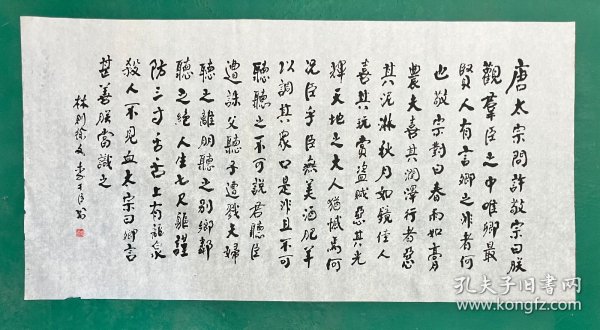 唐太宗問許敬宗曰朕
觀羣臣之中唯卿最
賢人有言卿之非者何
也敬宗對曰春雨如膏
農夫喜其潤澤行者惡
其泥濘秋月如鏡佳人
喜其玩賞盜賊惡其光
輝天地之大人猶憾焉何
況臣乎臣無美酒肥羊
以調其衆口是非且不可
聽聽之不可説君聽臣
遭誅父聽子遭戮夫婦
聽之離朋聽之别鄉鄰
聽之絶人生七尺軀謹
防三寸舌舌上有龍泉
殺人不見血太宗曰卿言
甚善朕當識之
林則徐文
孔夫子旧书网
www.kongfz.com